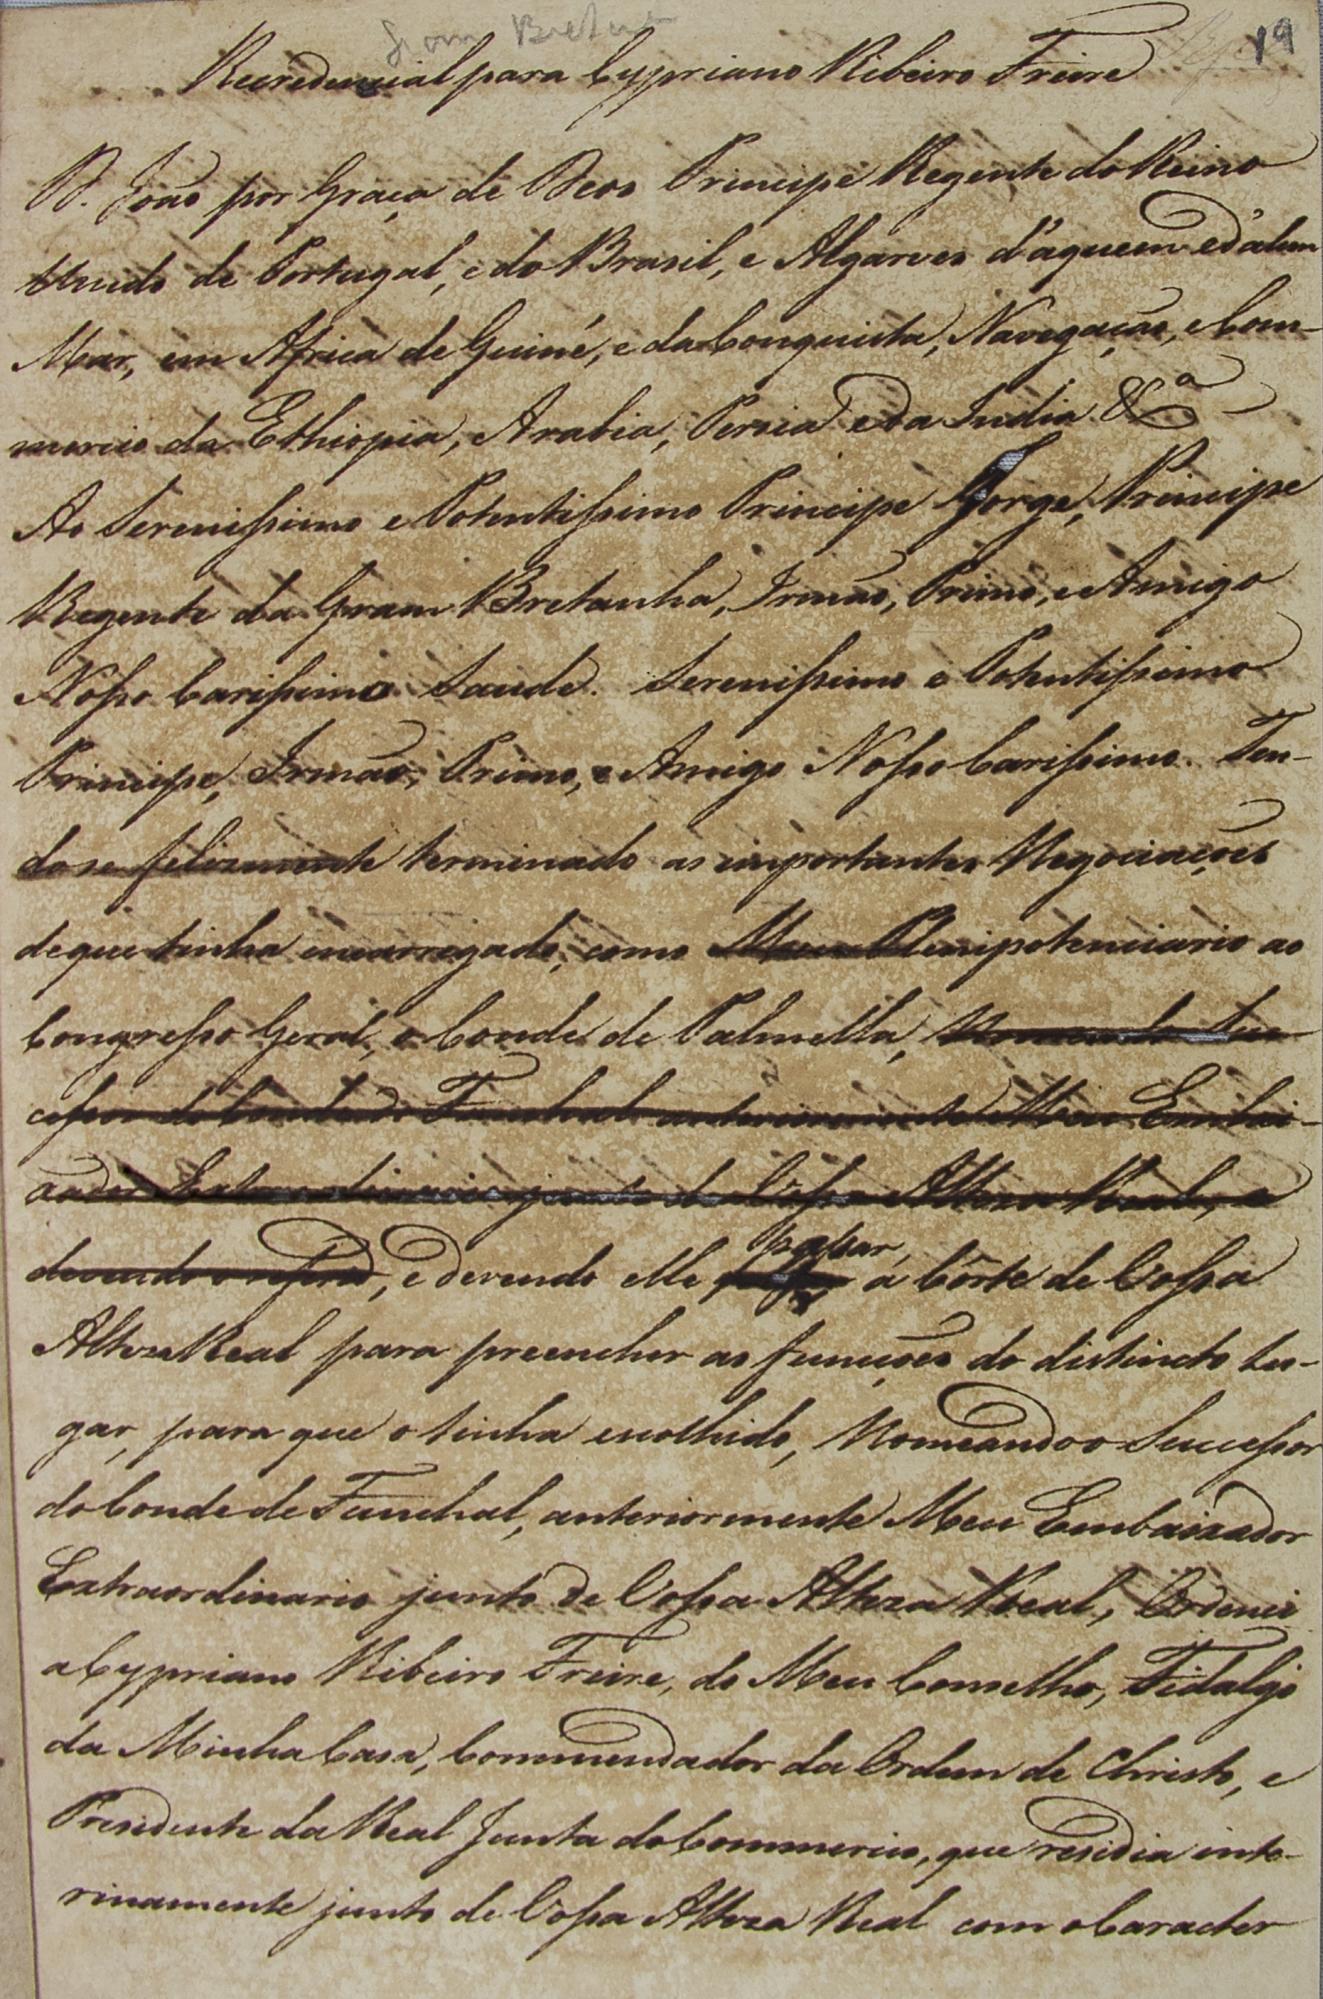 Gram Bretanha
19
Recredencial para Cypriano Ribeiro Freire
D. João por Graça de Deos Principe Regente do Reino
Unido de Portugal, e do Brasil, e Algarves d'aquem e d'alem
Mar, em Africa de Guiné, e da Conquista, Navegação, e Com-
mercio da Ethiopia, Arabia, Persia e da India &ª
Ao Serenissimo e Potentissimo Principe Jorge, Principe
Regente da Gram Bretanha, Irmão, Primo, e Amigo
Nosso Carissimo Saude. Serenissimo e Potentissimo
Principe, Irmão, Primo, e Amigo Nosso Carissimo. Ten-
do se felizmente terminado as importantes Negociações
de que tinha encarregado, como Meu Plenipotenciario ao
Congresso Geral, o Conde de Palmella, Nomeando Suc
cessor do Conde de Funchal anteriormente Meu Embai-
xador Extraordinario junto de Vossa Alteza Real, e
devendo o referido, e devendo elle passar, á Côrte de Vossa
Alteza Real para preencher as funcções do distincto Lu-
gar, para que o tinha escolhido, Nomeando o Successor
do Conde de Funchal, anteriormente Meu Embaixador
Extraordinario junto de Vossa Alteza Real, Ordenei
a Cypriano Ribeiro Freire, do Meu Conselho, Fidalgo
da Minha Casa, Commendador da Ordem de Christo, e
Presidente da Real Junta do Commercio, que residia inte-
rinamente junto de Vossa Alteza Real com o Caracter